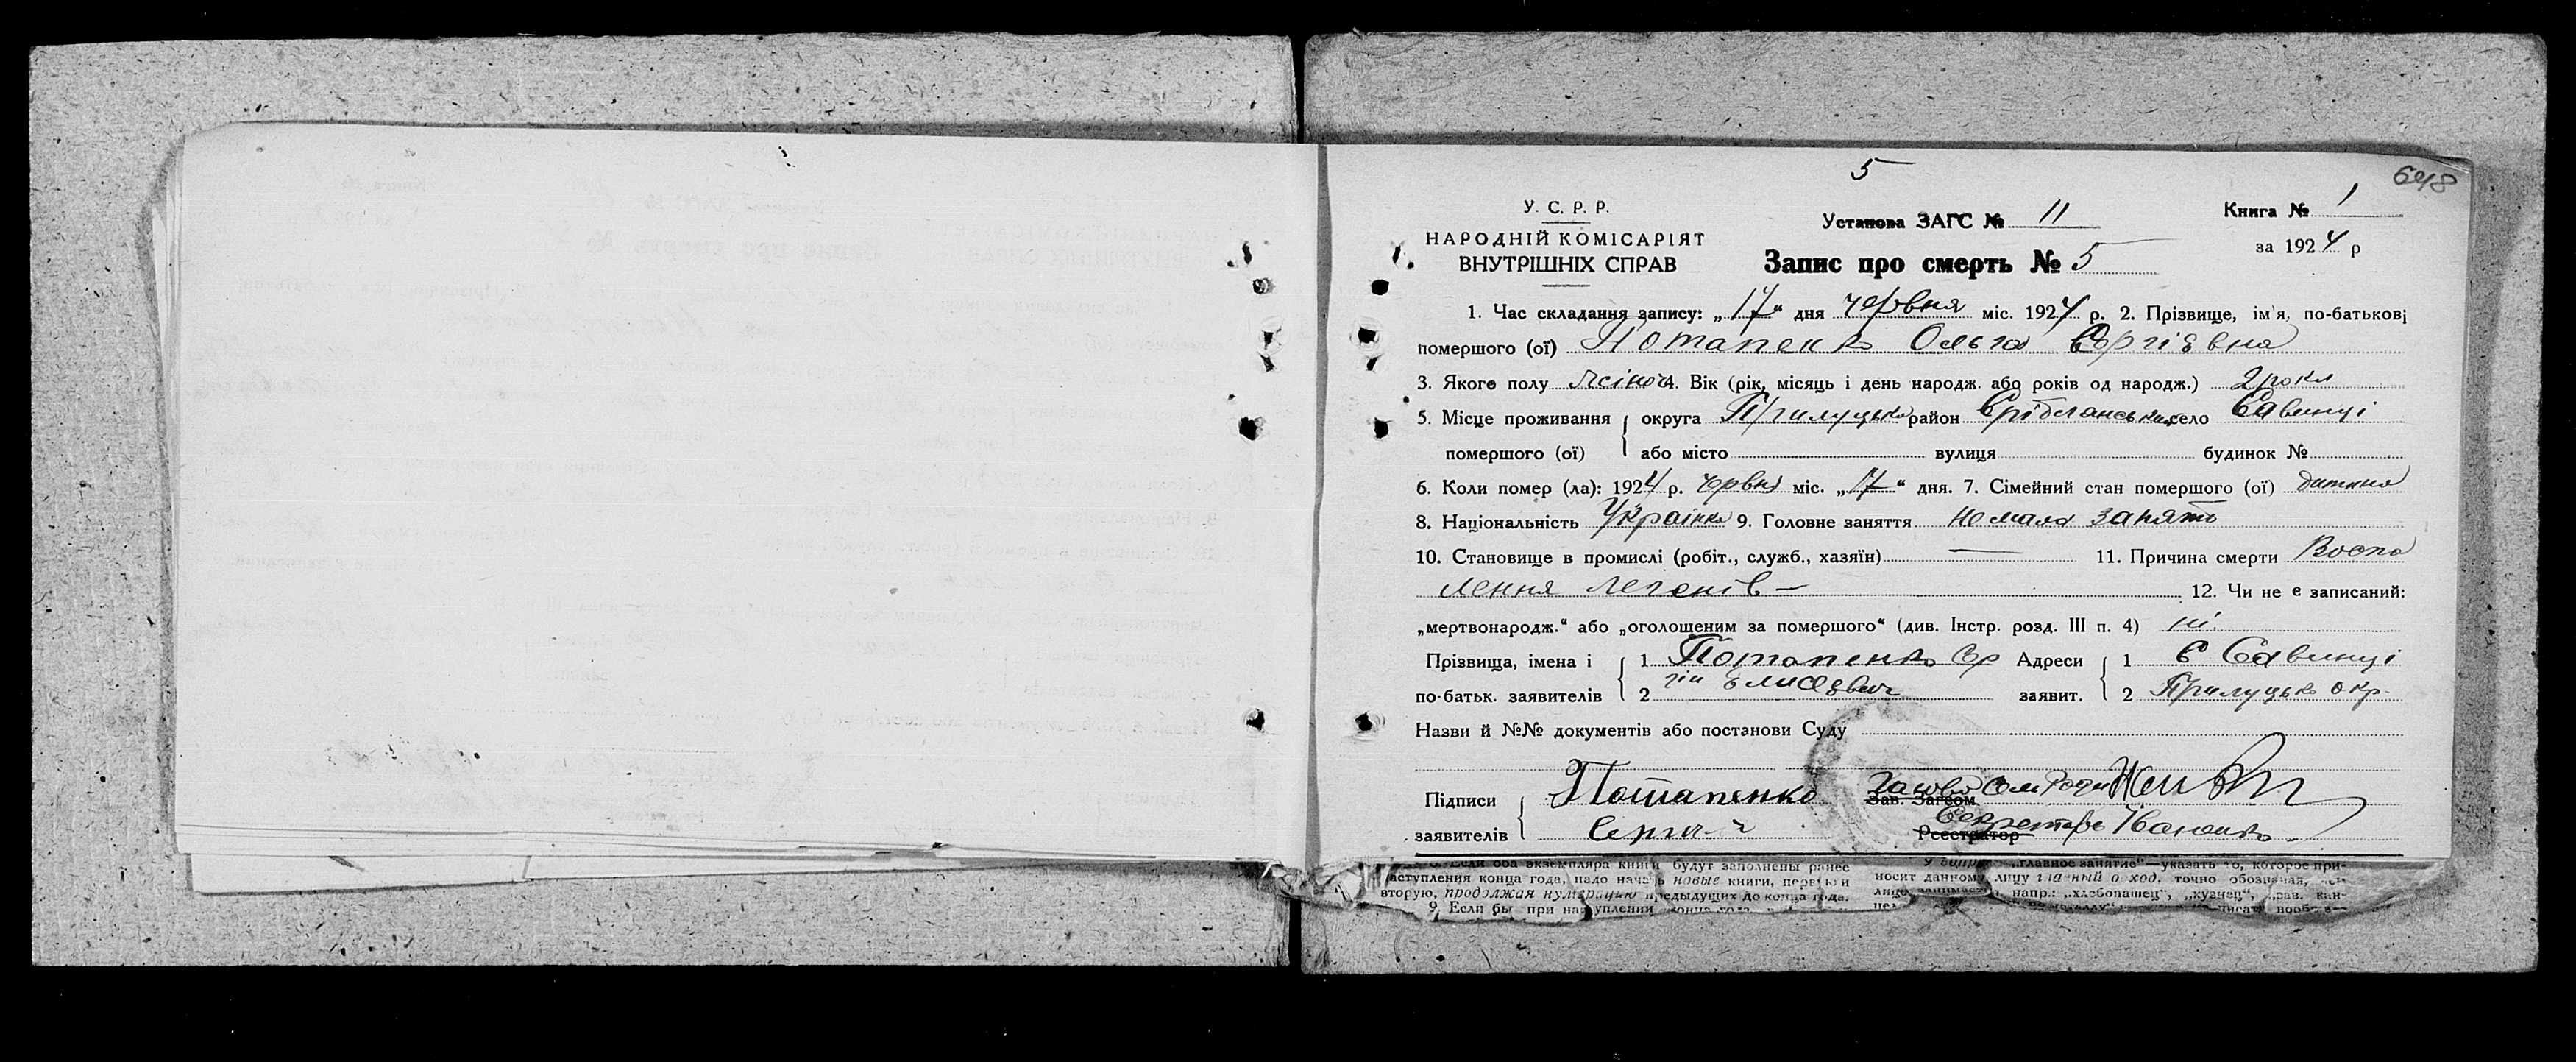 5
648
У. С. Р. Р.
НАРОДНІЙ КОМІСАРІЯТ
ВНУТРІШНІХ СПРАВ
Установа ЗАГС № 11
Книга № 1
за 1924 р
Запис про смерть № 5
1. Час складання запису: „17“ дня червня міс. 1924 р. 2. Прізвище, ім'я, по-батькові
помершого (ої) Потапенко Ольга Сергіївна
3. Якого полу жіноч 4. Вік (рік, місяць і день народж. або років од народж.) 2 роки
5. Місце проживання округа Прилуцька район Срібнянський село Савинці
помершого (ої) або місто вулиця будинок №
6. Коли помер (ла): 1924 р. червня міс. „17“ дня. 7. Сімейний стан помершого (ої) дитина
8. Національність Українка 9. Головне заняття не мала занять
10. Становище в промислі (робіт., служб., хазяїн) — 11. Причина смерти Воспа
лення легенів — 12. Чи не є записаний:
„мертвонародж.“ або „оголошеним за помершого“ (див. Інстр. розд. III п. 4) ні
Прізвища, імена і 1 Потапенко Сер Адреси 1 С Савинці
по-батьк. заявителів 2 гій Єлисеєвич заявит. 2 Прилуцько окр.
Назви й №№ документів або постанови Суду
Підписи Потапенко Голова Зав. Загсом
заявителів Сергій Секретарь Реєстратор Іваненко
Если оба экземпляра книги будут заполнены ранее
наступления конца года, надо начать новые книги, первую и
вторую, продолжая нумерацию предыдущих до конца года.
9. Если бы при наступлении конца года
„главное занятие“—указать то, которое при-
носит данному лицу главный доход, точно обозначая,
напр.: „хлебопашец“, „кузнец“, „зав. кан-